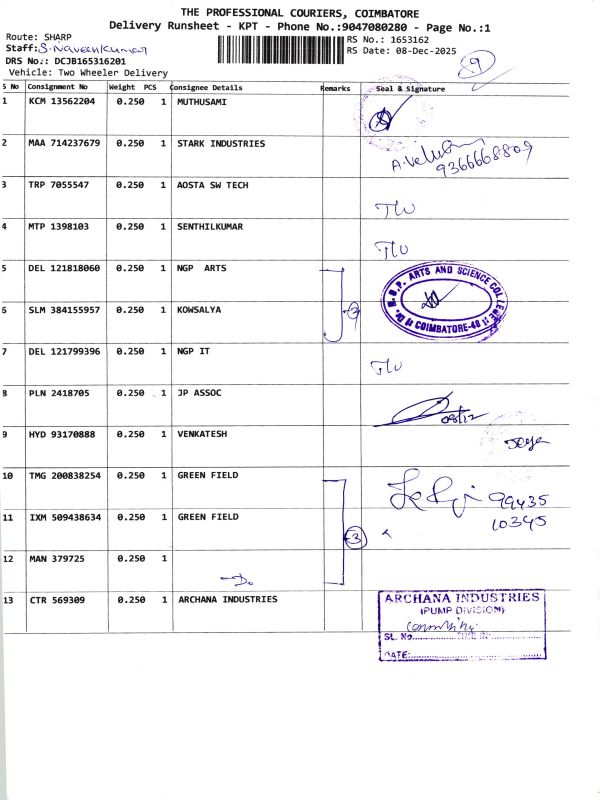 THE PROFESSIONAL COURIERS, COIMBATORE
Delivery Runsheet - KPT - Phone No.:9047080280 - Page No.:1
Route: SHARP
Staff: S. Naveenkumar
DRS No.: DCJB165316201
Vehicle: Two Wheeler Delivery
RS No.: 1653162
RS Date: 08-Dec-2025
S No Consignment No Weight PCS Consignee Details Remarks Seal & Signature
1 KCM 13562204 0.250 1 MUTHUSAMI
2 MAA 714237679 0.250 1 STARK INDUSTRIES
9366668809
3 TRP 7055547 0.250 1 AOSTA SW TECH
4 MTP 1398103 0.250 1 SENTHILKUMAR
5 DEL 121818060 0.250 1 NGP ARTS
N.G.P. ARTS AND SCIENCE COLLEGE
COIMBATORE-48
6 SLM 384155957 0.250 1 KOWSALYA
7 DEL 121799396 0.250 1 NGP IT
8 PLN 2418705 0.250 1 JP ASSOC
9 HYD 93170888 0.250 1 VENKATESH
10 TMG 200838254 0.250 1 GREEN FIELD
99435
10345
11 IXM 509438634 0.250 1 GREEN FIELD
3
12 MAN 379725 0.250 1
13 CTR 569309 0.250 1 ARCHANA INDUSTRIES
ARCHANA INDUSTRIES
(PUMP DIVISION)
SL. No
DATE: